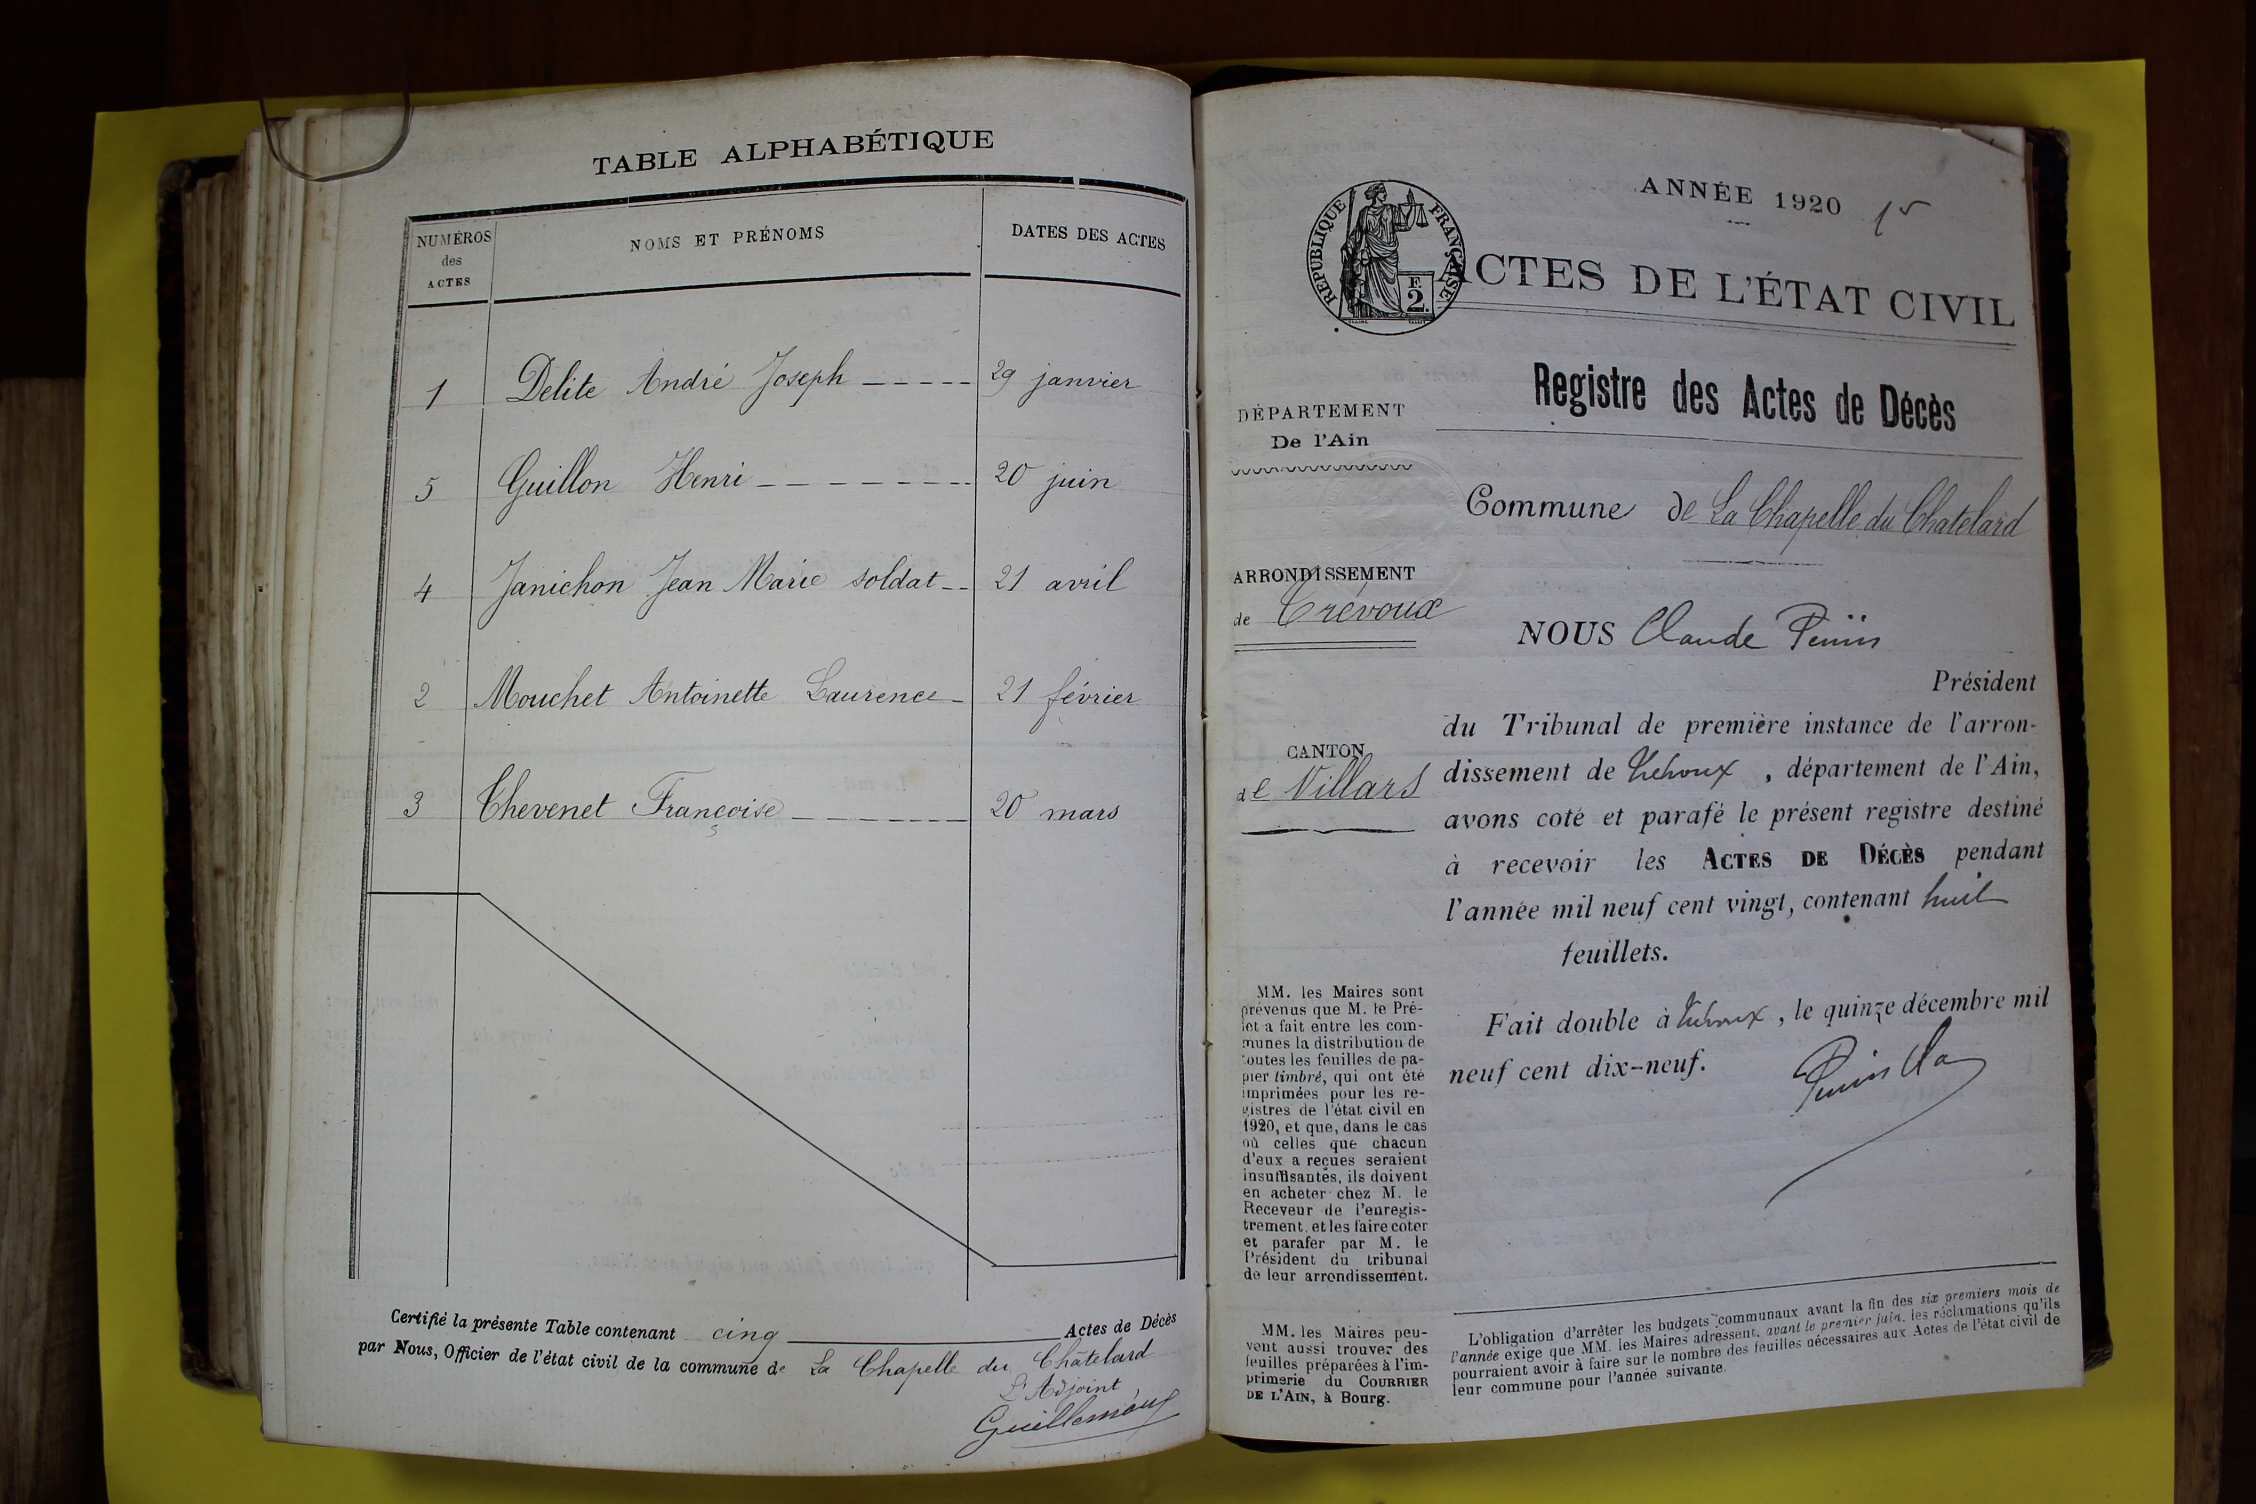 TABLE ALPHABÉTIQUE
NUMÉROS des ACTES
NOMS ET PRÉNOMS
DATES DES ACTES
1 Delite André Joseph 29 janvier
5 Guillon Henri 20 juin
4 Janichon Jean Marie soldat 21 avril
2 Mouchet Antoinette Laurence 21 février
3 Thevenet Françoise 20 mars
Certifié la présente Table contenant cinq Actes de Décès
par Nous, Officier de l'état civil de la commune de La Chapelle du Châtelard
L'Adjoint
ANNÉE 1920 15
RÉPUBLIQUE FRANÇAISE
F. 2.
ACTES DE L'ÉTAT CIVIL
Registre des Actes de Décès
DÉPARTEMENT
De l'Ain
Commune de La Chapelle du Chatelard
ARRONDISSEMENT
de Trévoux
NOUS Claude
Président
CANTON
de Villars
du Tribunal de première instance de l'arron-
dissement de Trévoux, département de l'Ain,
avons coté et parafé le présent registre destiné
à recevoir les ACTES DE DÉCÈS pendant
l'année mil neuf cent vingt, contenant huit
feuillets.
Fait double à Trévoux, le quinze décembre mil
neuf cent dix-neuf.
MM. les Maires sont
prévenus que M. le Pré-
fet a fait entre les com-
munes la distribution de
toutes les feuilles de pa-
pier timbré, qui ont été
imprimées pour les re-
gistres de l'état civil en
1920, et que, dans le cas
où celles que chacun
d'eux a reçues seraient
insuffisantes, ils doivent
en acheter chez M. le
Receveur de l'enregis-
trement, et les faire coter
et parafer par M. le
Président du tribunal
de leur arrondissement.
MM. les Maires peu-
vent aussi trouver des
feuilles préparées à l'im-
primerie du COURRIER
DE L'AIN, à Bourg.
L'obligation d'arrêter les budgets communaux avant la fin des six premiers mois de
l'année exige que MM. les Maires adressent, avant le premier juin, les réclamations qu'ils
pourraient avoir à faire sur le nombre des feuilles nécessaires aux Actes de l'état civil de
leur commune pour l'année suivante.